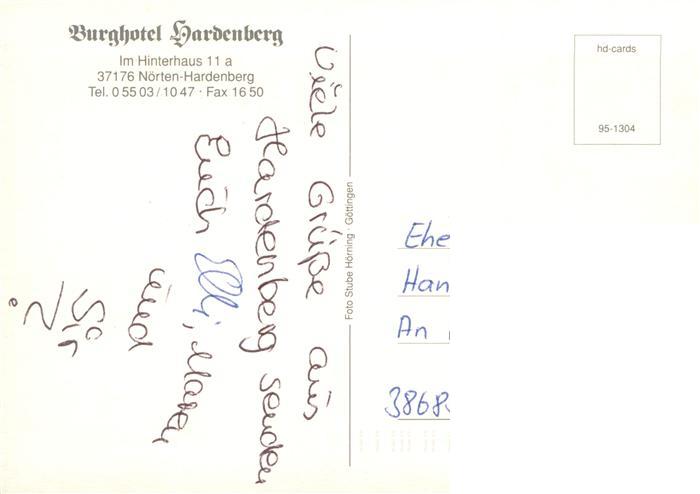 Burghotel Hardenberg
Im Hinterhaus 11 a
37176 Nörten-Hardenberg
Tel. 0 55 03 / 10 47 · Fax 16 50
Viele Grüße aus
Hardenberg senden
Euch Elli,
und
Foto Stube Hörning · Göttingen
hd-cards
95-1304
Ehe
Han
An
3868